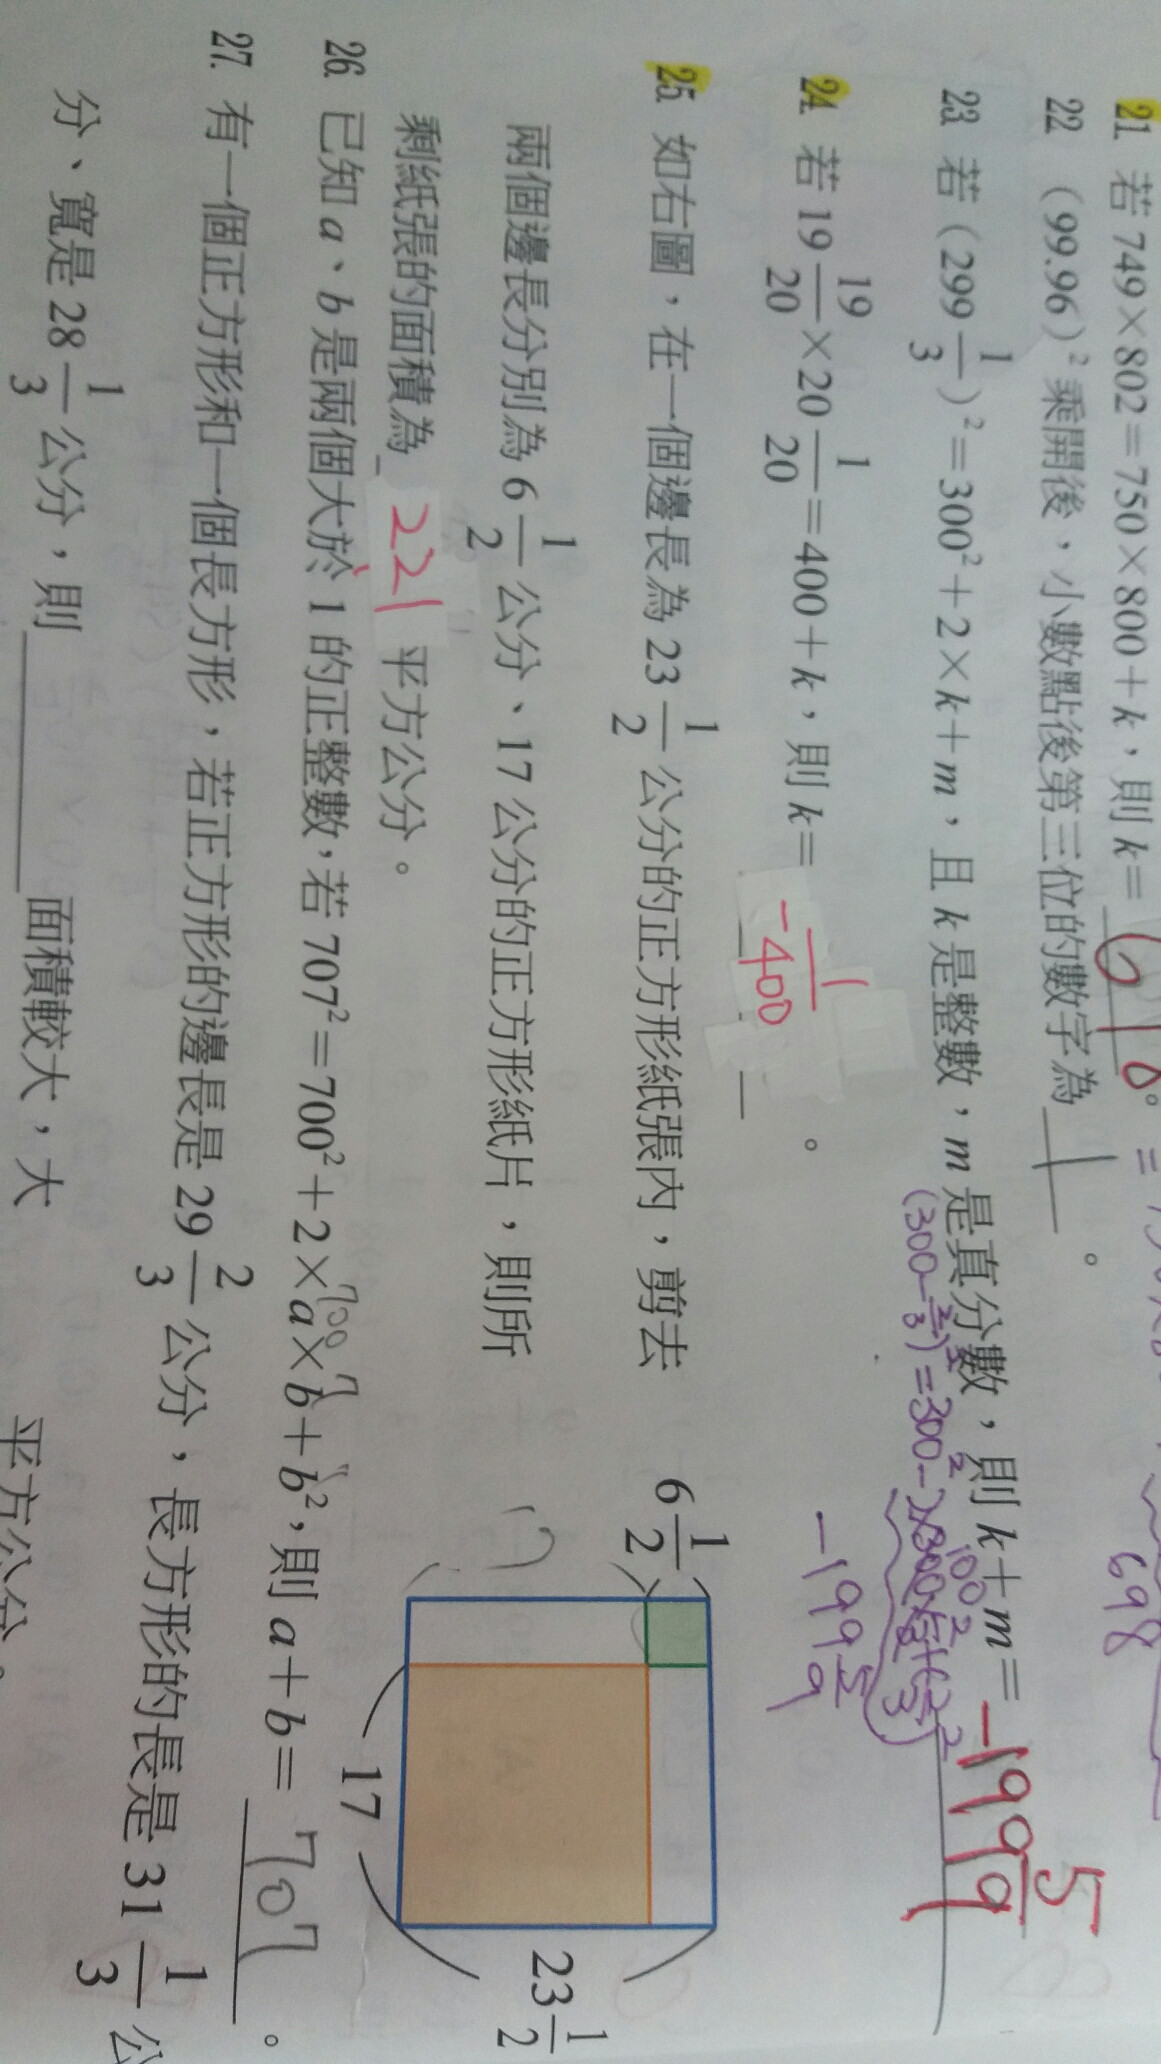 21. 若 749×802=750×800+k,則 k= 698
22. (99.96)²乘開後,小數點後第三位的數字為 1 。
23. 若 (299 1/3)²=300²+2×k+m,且 k 是整數,m 是真分數,則 k+m= -199 5/9
(300-2/3)²=300²-2×300×2/3+(2/3)²
100
-199 5/9
24. 若 19 19/20×20 1/20=400+k,則 k= -1/400 。
25. 如右圖,在一個邊長為 23 1/2 公分的正方形紙張內,剪去
兩個邊長分別為 6 1/2 公分、17 公分的正方形紙片,則所
剩紙張的面積為 221 平方公分。
6 1/2
17
23 1/2
26. 已知 a、b 是兩個大於 1 的正整數,若 707²=700²+2×a×b+b²,則 a+b= 707 。
700 7
27. 有一個正方形和一個長方形,若正方形的邊長是 29 2/3 公分,長方形的長是 31 1/3 公
分、寬是 28 1/3 公分,則 面積較大,大 平方公分。